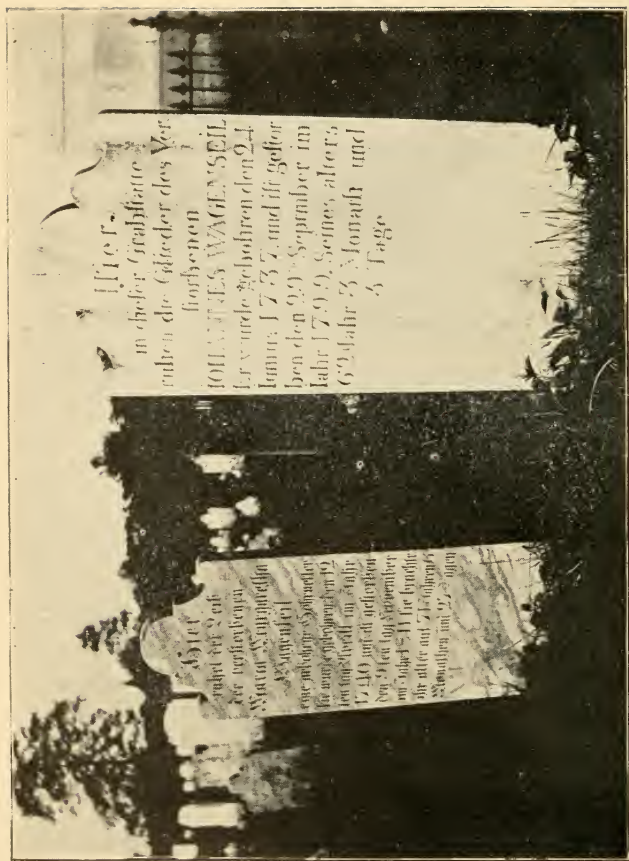 Hier
in dieser Grabstätte
ruhen die Glieder des Ver
storbenen
IOHANNES WAGENSEIL
Er wurde gebohren den 24
1737 und ist gestor
ben den 29 September im
Jahr 1799, Seines alters
62 Jahr 3 Monath und
Tage
Hier
ruhet der Leib
der verstorbenen
Maria
Wagenseil
eine gebohrne
Sie wurde gebohren den 12
ten Tag im Jahr
1740 und ist gestorben
den 9ten Tag September
im Jahr 1811 Sie brachte
ihr alter auf 71 Jahren
Monathen und Tagen